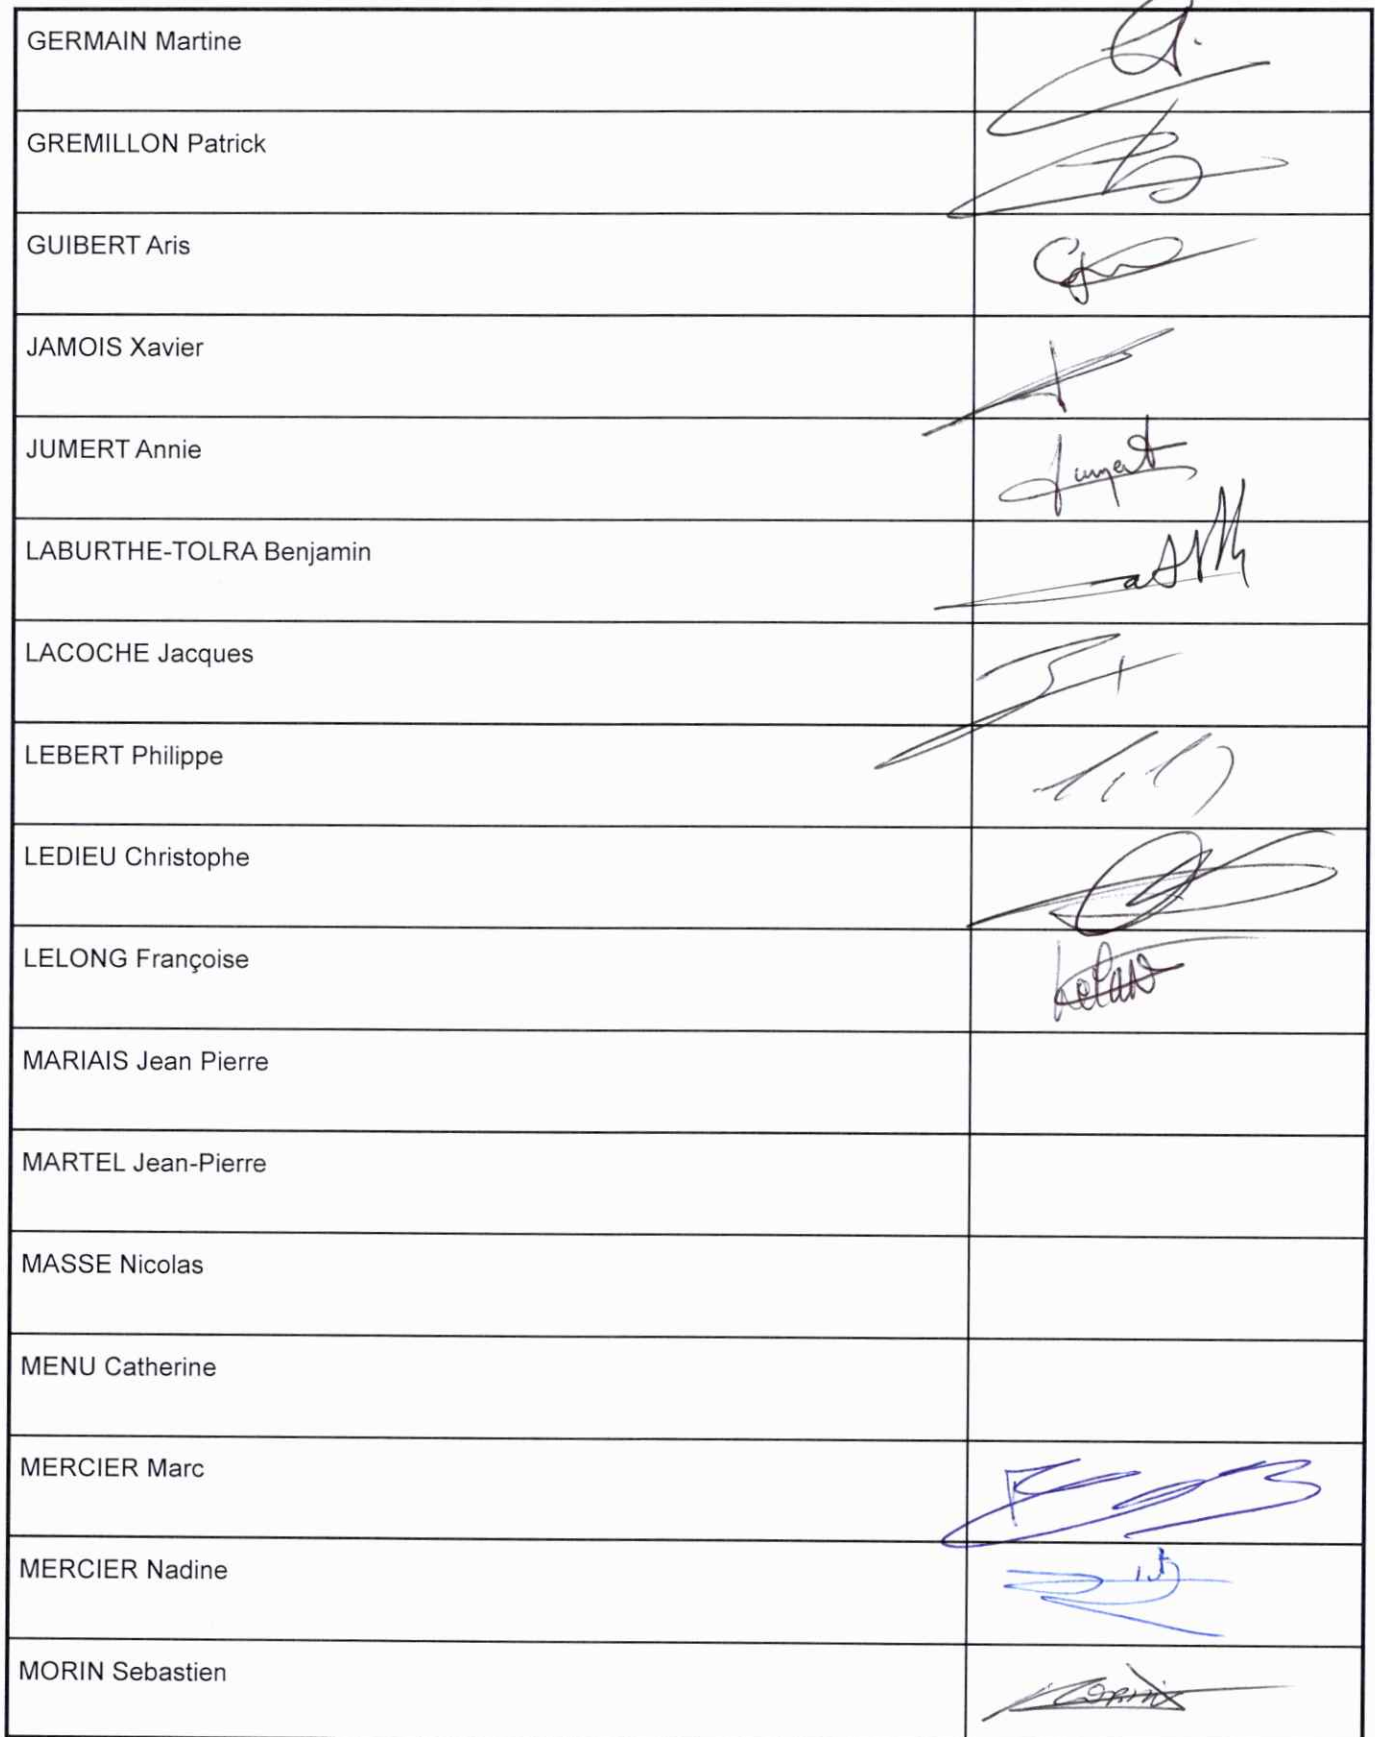 GERMAIN Martine
GREMILLON Patrick
GUIBERT Aris
JAMOIS Xavier
JUMERT Annie
LABURTHE-TOLRA Benjamin
LACOCHE Jacques
LEBERT Philippe
LEDIEU Christophe
LELONG Françoise
MARIAIS Jean Pierre
MARTEL Jean-Pierre
MASSE Nicolas
MENU Catherine
MERCIER Marc
MERCIER Nadine
MORIN Sebastien